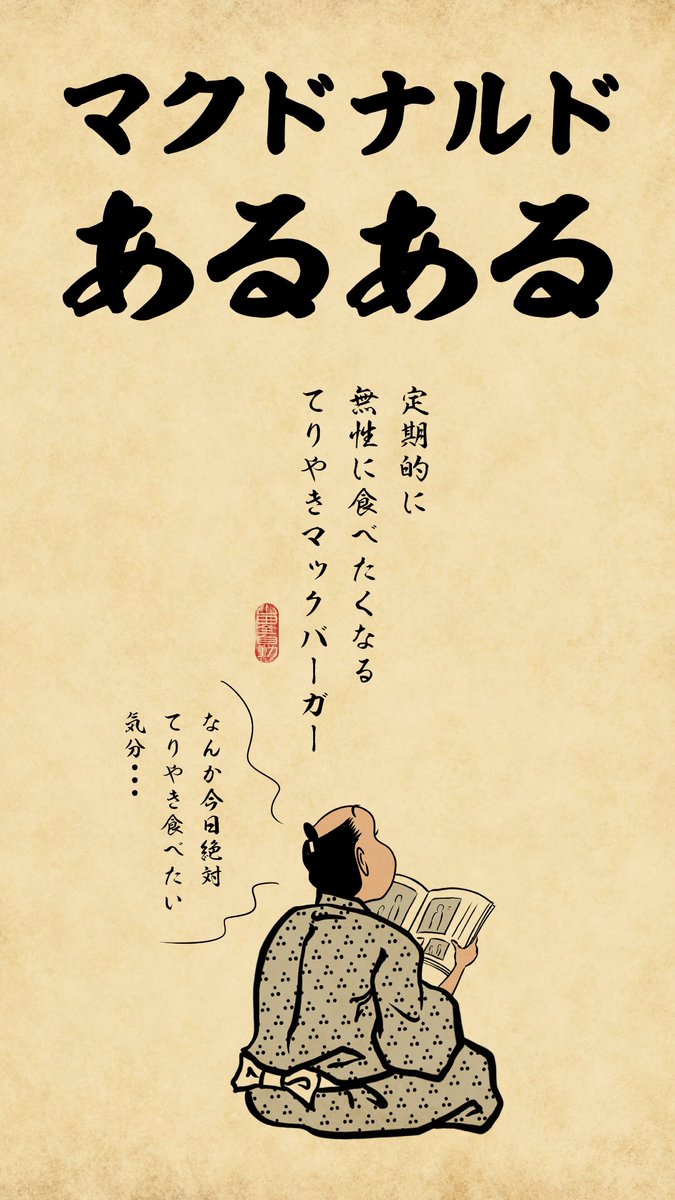 マクドナルド
あるある
定期的に
無性に食べたくなる
てりやきマックバーガー
なんか今日絶対
てりやき食べたい
気分・・・